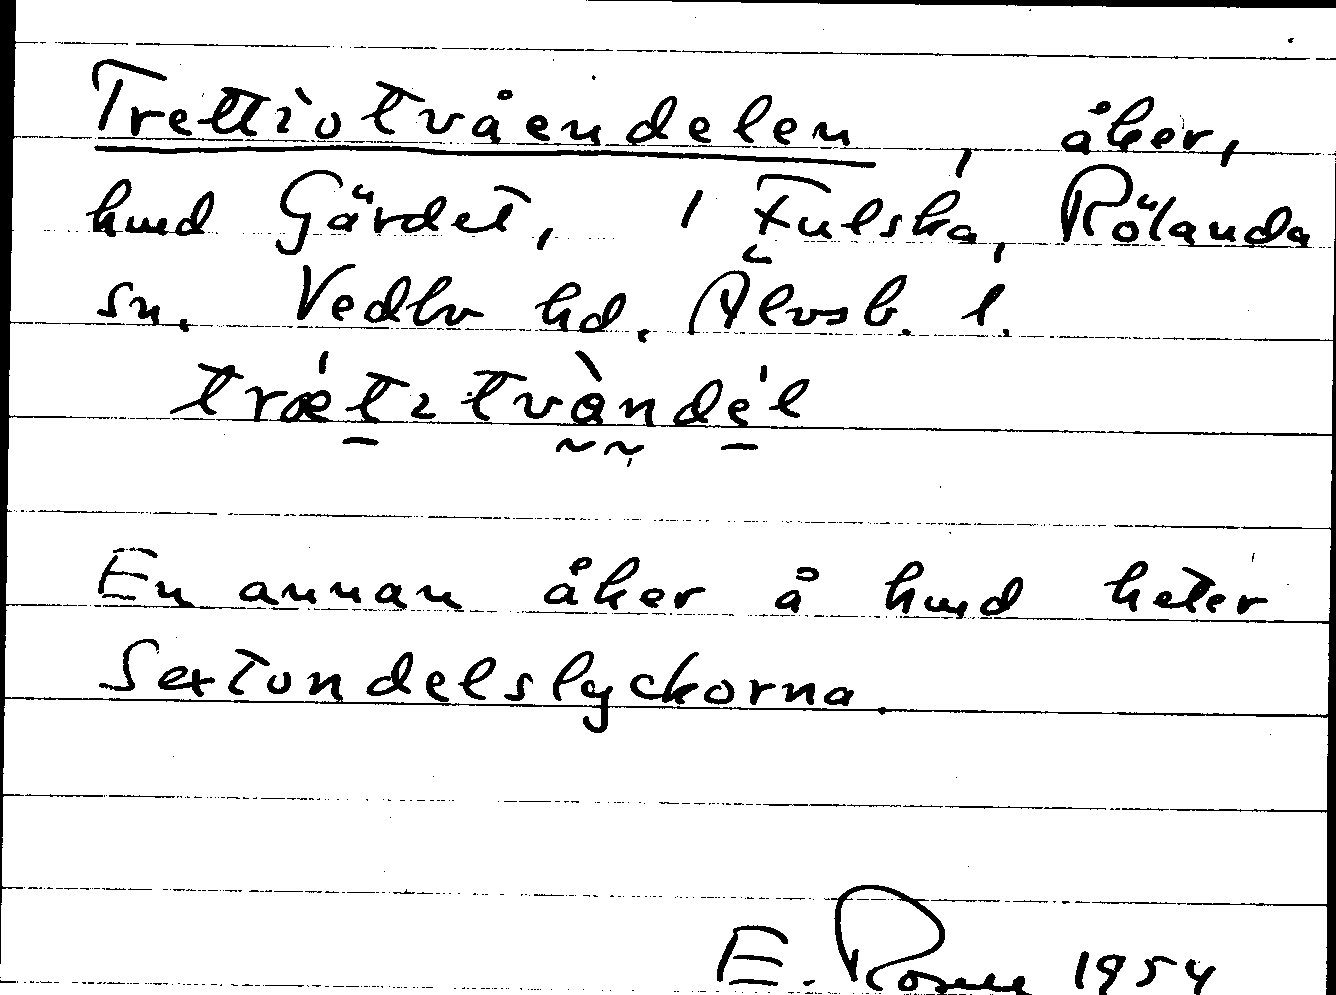 Trettiotvåendelen, åker,
hmd Gärdet, 1 Fulska, Rölanda
sn. Vedbo hd. Älvsb. l.
trætitvàndél
En annan åker å hmd heter
Sextondelslyckorna.
E. Rosell 1954